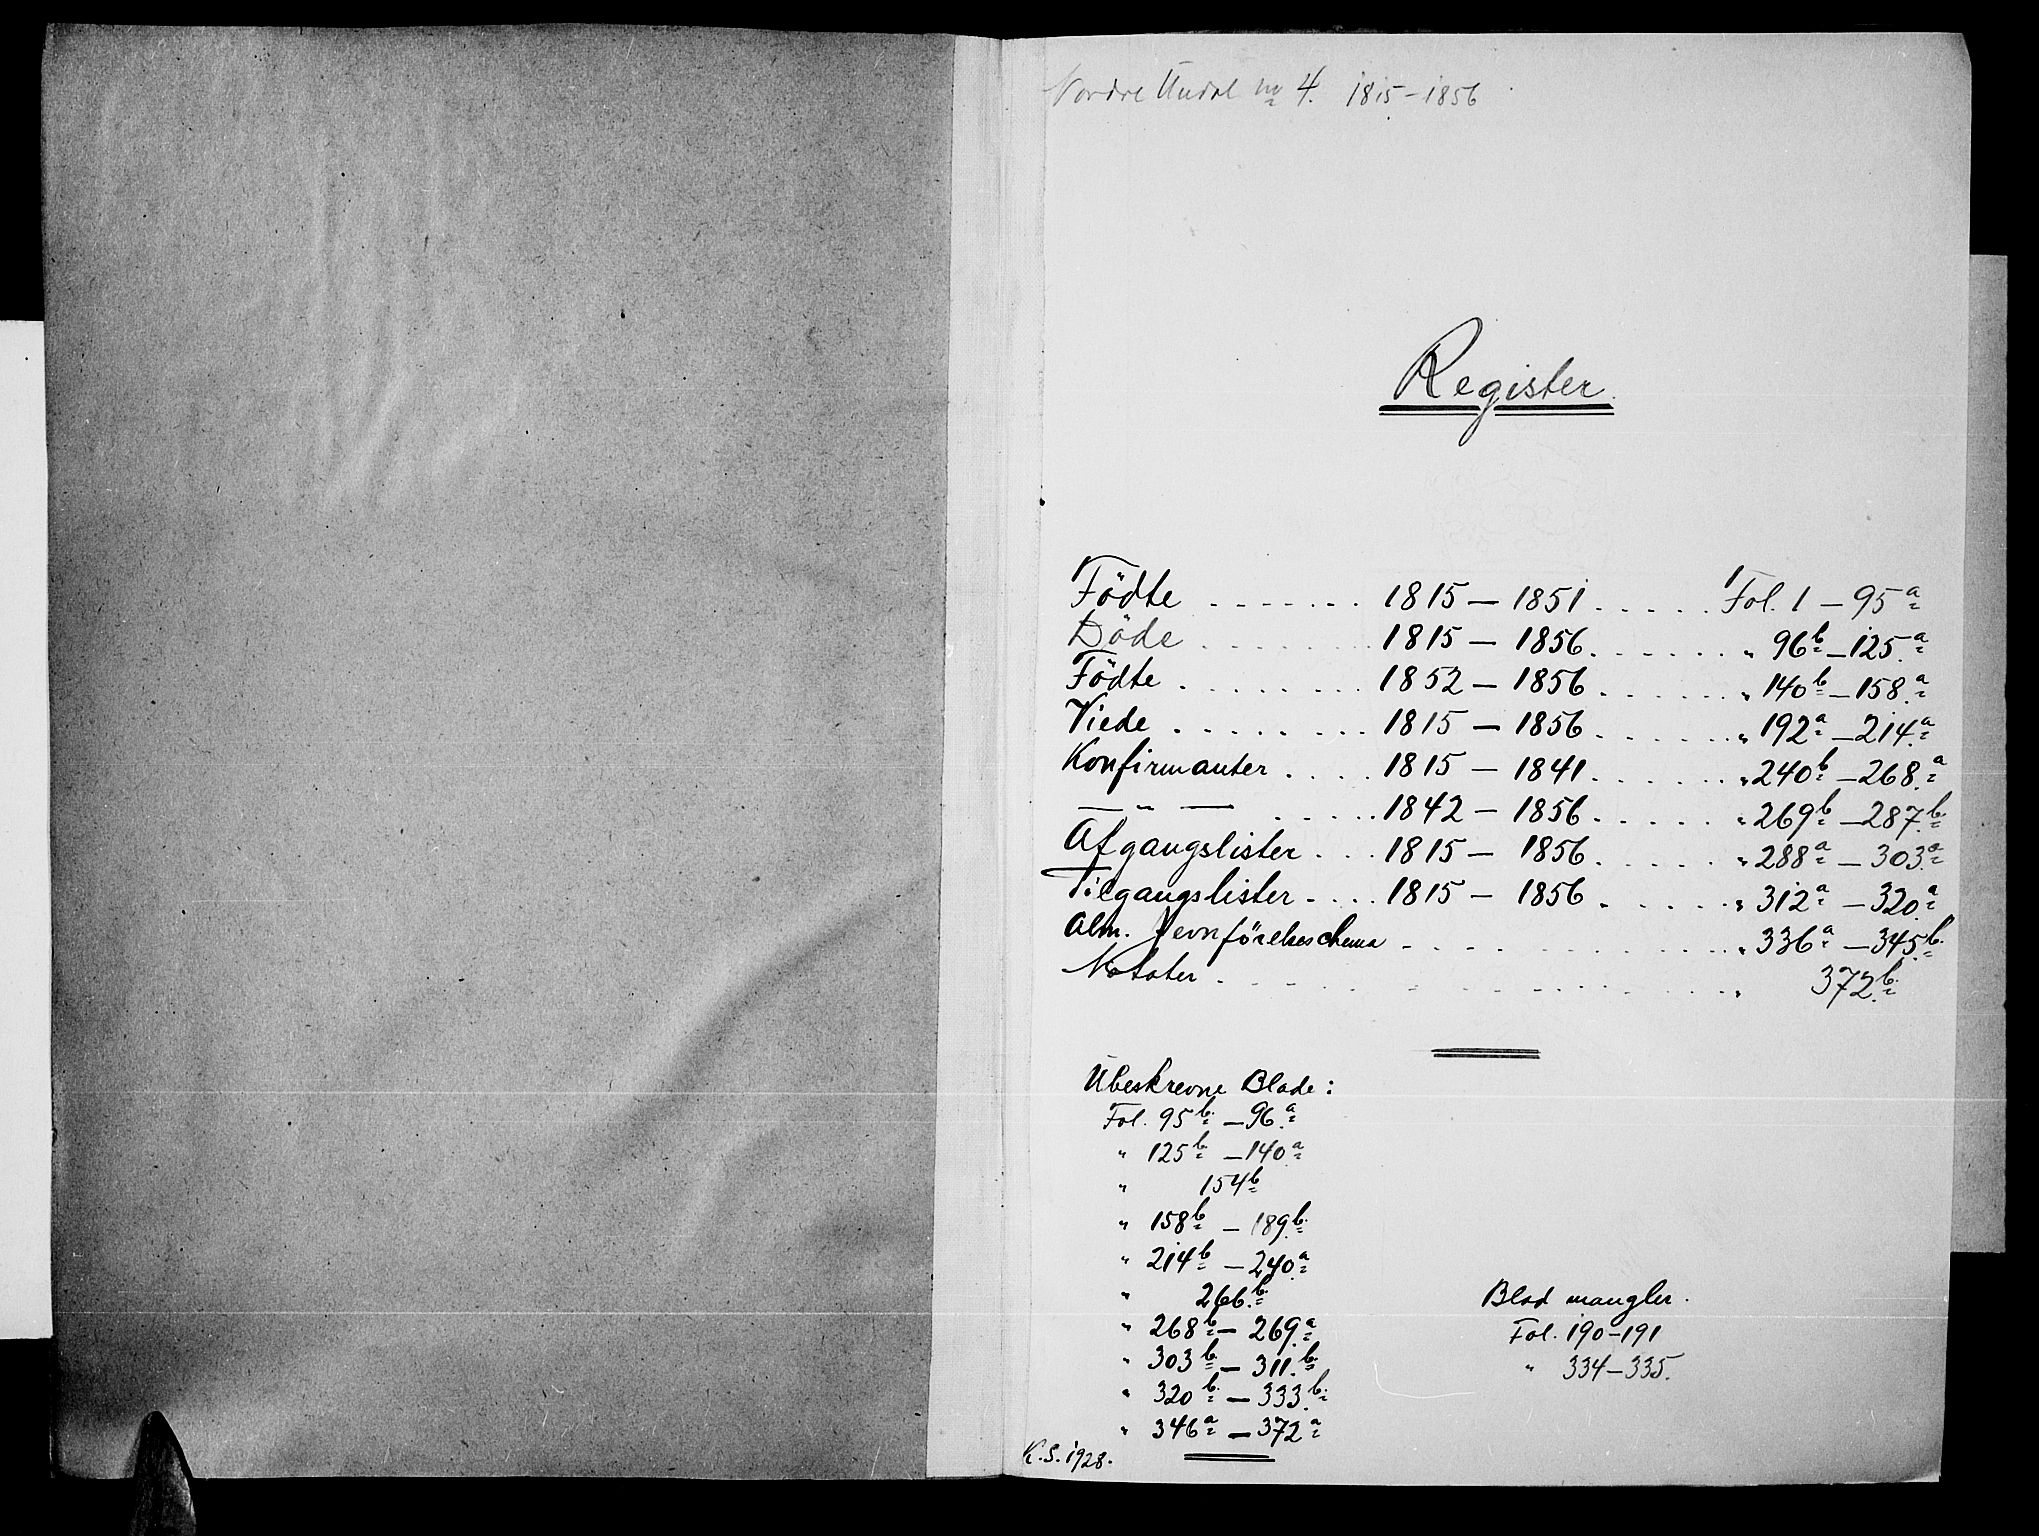 Nordre Undal no 4. 1815-1856
Register.
Födte ....... 1815 — 1851 ..... Fol. 1 — 95a
Döde ....... 1815 — 1856 ...... " 96b — 125a
Födte ....... 1852 — 1856 ...... " 140b — 158a
Viede ....... 1815 — 1856 ...... " 192a — 214a
Konfirmanter .... 1815 — 1841 ...... " 240b — 268a
— " — ..... 1842 — 1856 ...... " 269b — 287b
Afgangslister ... 1815 — 1856 ..... " 288a — 303a
Tilgangslister .... 1815 — 1856 ..... " 312a — 320a
Alm. Jevnförelseschema ....... " 336a — 345b
Notater ............ " 372b
Ubeskrevne Blade:
Fol. 95b — 96a
" 125b — 140a
" 154b
" 158b — 189b
" 214b — 240a
" 266b
" 268b — 269a
" 303b — 311b
" 320b — 333b
" 346a — 372a
Blad mangler.
Fol. 190-191
" 334-335.
K.S. 1928.